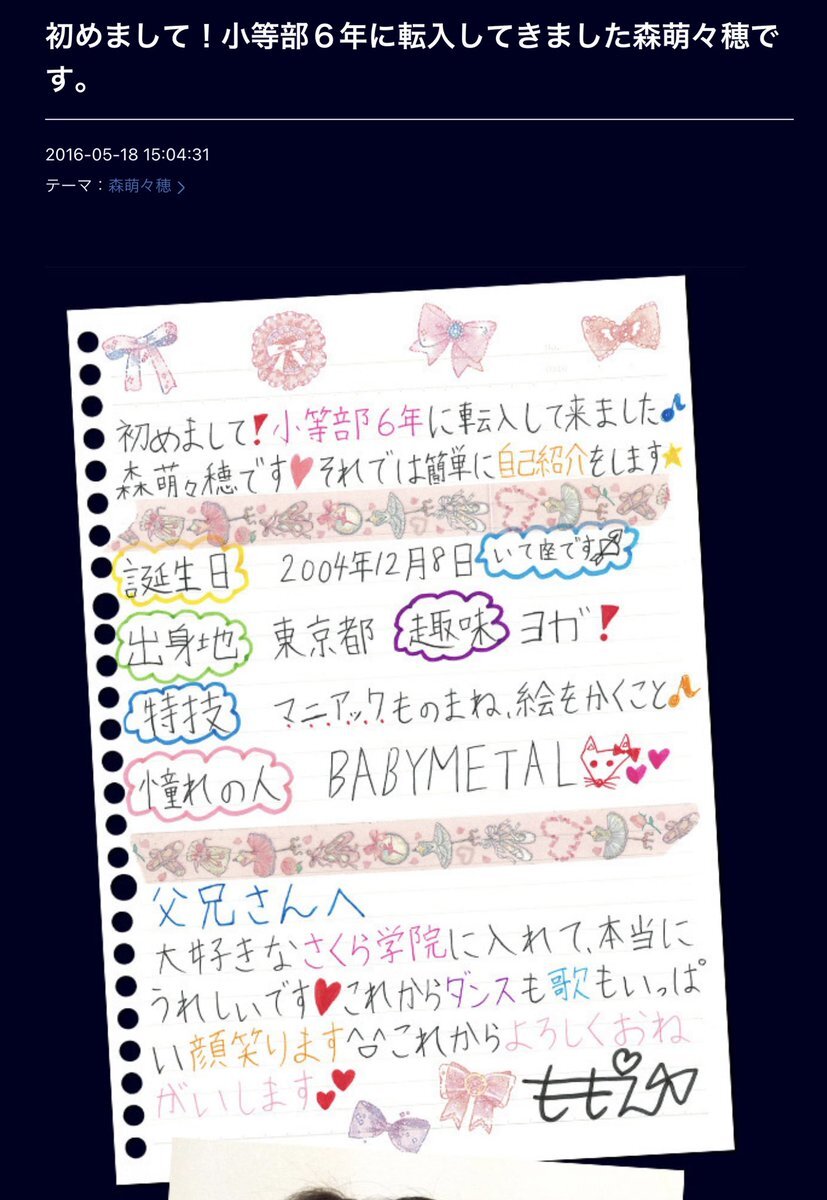 初めまして！小等部６年に転入してきました森萌々穂で
す。
2016-05-18 15:04:31
テーマ：森萌々穂 >
初めまして!小等部6年に転入して来ました♪
森萌々穂です♥それでは簡単に自己紹介をします★
誕生日 2004年12月8日 いて座です
出身地 東京都 趣味 ヨガ!
特技 マニアックものまね、絵をかくこと♪
憧れの人 BABYMETAL
父兄さんへ
大好きなさくら学院に入れて、本当に
うれしいです♥これからダンスも歌もいっぱ
い顔笑ります^^これからよろしくおね
がいします